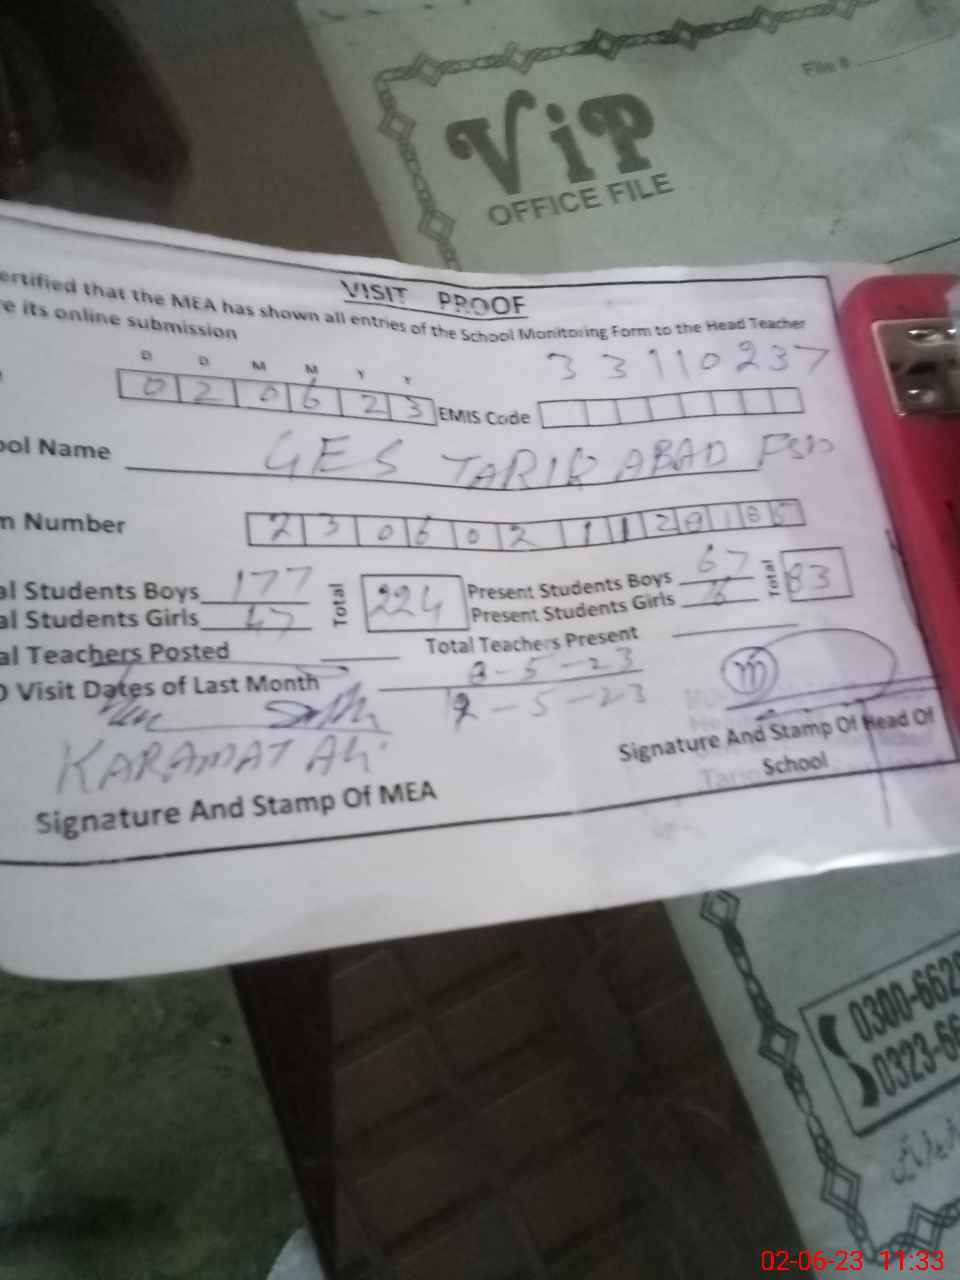 File #
ViP
OFFICE FILE
VISIT PROOF
ertified that the MEA has shown all entries of the School Monitoring Form to the Head Teacher
re its online submission
D D M M Y Y
0 2 0 6 2 3 EMIS Code 3 3 1 1 0 2 3 7
ool Name GES TARIQ ABAD FSD
m Number 2 3 0 6 0 2 1 1 2
al Students Boys 177 Total 224 Present Students Boys 67 Total 83
al Students Girls 47 Present Students Girls 16
al Teachers Posted Total Teachers Present
O Visit Dates of Last Month -5-23
-5-23
KARAMAT Ali
Signature And Stamp Of MEA
Signature And Stamp Of Head Of
School
0300-662
0323-66
02-06-23 11:33